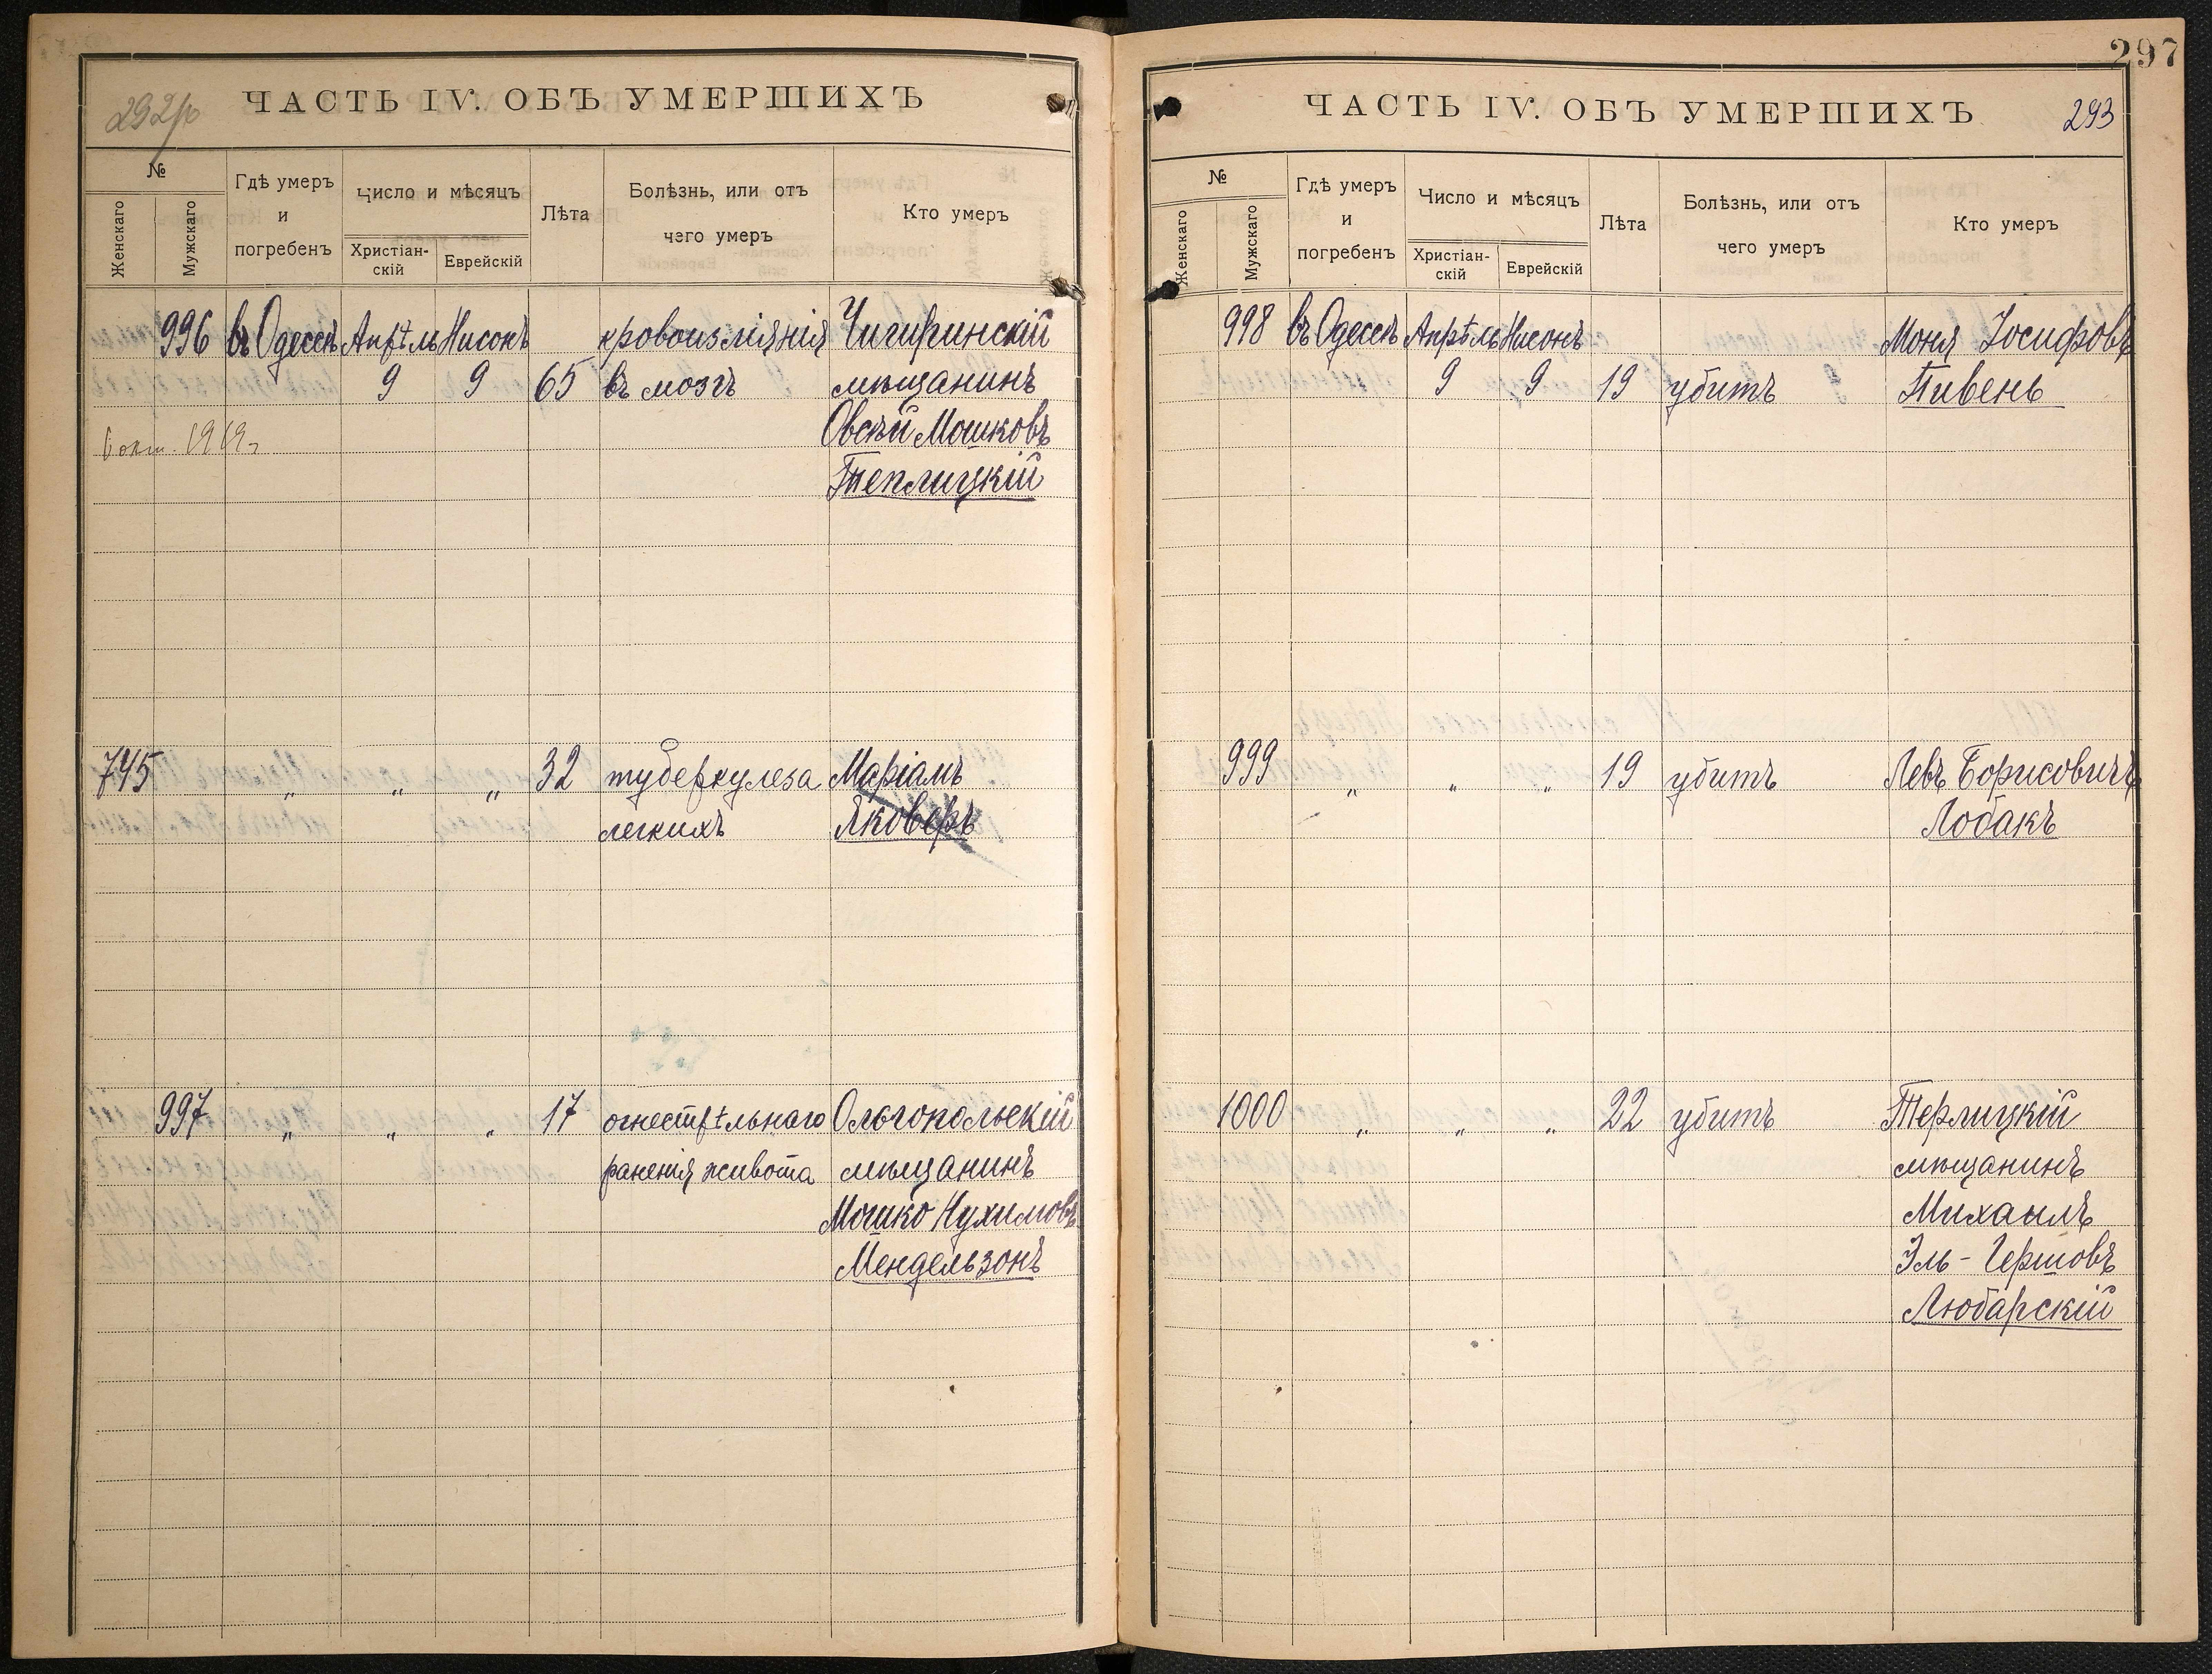 ЧАСТЬ IV. ОБЪ УМЕРШИХЪ
№
Женскаго
Мужскаго
Гдѣ умеръ
и
погребенъ
Число и мѣсяцъ
Христіан-
скій
Еврейскій
Лѣта
Болѣзнь, или отъ
чего умеръ
Кто умеръ
996 въ Одессѣ Апрѣль Нисонъ кровоизліянія Чигиринскій
9 9 65 въ мозгъ мѣщанинъ
окт. 1919г Овсѣй Мошковъ
Теплицкій
745 „ „ „ 32 туберкулеза Маріамъ
легкихъ Яковеръ
997 „ „ „ 17 огнестрѣльнаго Ольгопольскій
раненія живота мѣщанинъ
Мошко Нухимовъ
Мендельзонъ
297
ЧАСТЬ IV. ОБЪ УМЕРШИХЪ 293
№
Женскаго
Мужскаго
Гдѣ умеръ
и
погребенъ
Число и мѣсяцъ
Христіан-
скій
Еврейскій
Лѣта
Болѣзнь, или отъ
чего умеръ
Кто умеръ
998 въ Одессѣ Апрѣль Нисонъ Моня Іосифовъ
9 9 19 убитъ Пивень
999 „ „ „ 19 убитъ Левъ Борисовичъ
Лобакъ
1000 „ „ „ 22 убитъ Терлицкій
мѣщанинъ
Михаилъ
Эль-Гершовъ
Любарскій